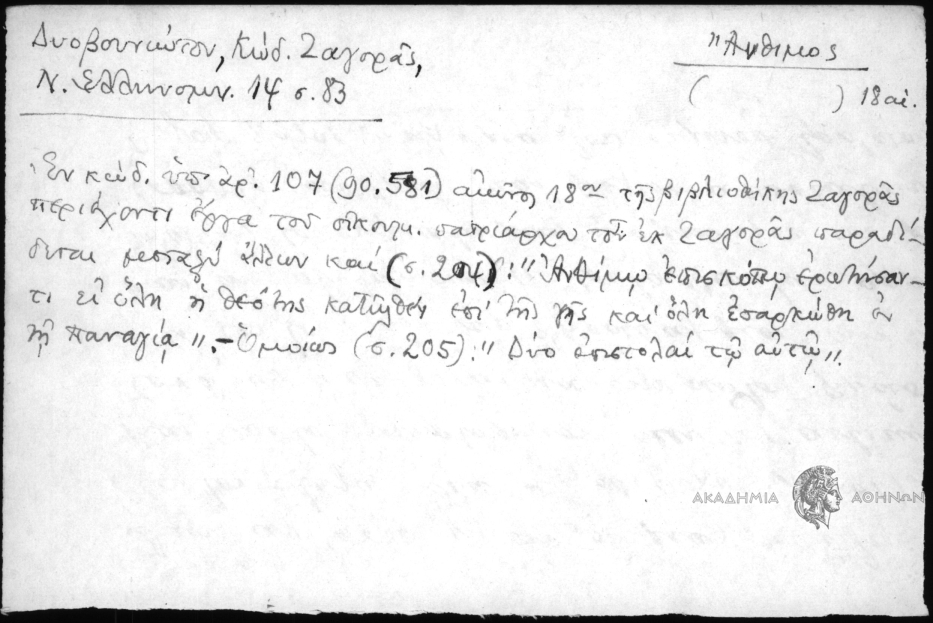 Δυοβουνιώτου, Κώδ. Ζαγορᾶς,
Ν. Ἑλληνομν. 14 σ. 83
Ἄνθιμος
( ) 18 αἰ.
Ἐν κώδ. ὑπ' ἀρ. 107 (90. 581) αἰῶνος 18ου τῆς βιβλιοθήκης Ζαγορᾶς
περιέχοντι ἔργα τοῦ οἰκουμ. πατριάρχου τοῦ ἐκ Ζαγορᾶς παραδί-
δεται μεταξὺ ἄλλων καὶ (σ. 204): "Ἀνθίμῳ ἐπισκόπῳ ἐρωτήσαν-
τι εἰ ὅλη ἡ θεότης κατῆλθεν ἐπὶ τῆς γῆς καὶ ὅλη ἐσαρκώθη ἐν
τῇ παναγίᾳ".- Ὁμοίως (σ. 205): "Δύο ἐπιστολαὶ τῷ αὐτῷ".
ΑΚΑΔΗΜΙΑ ΑΘΗΝΩΝ